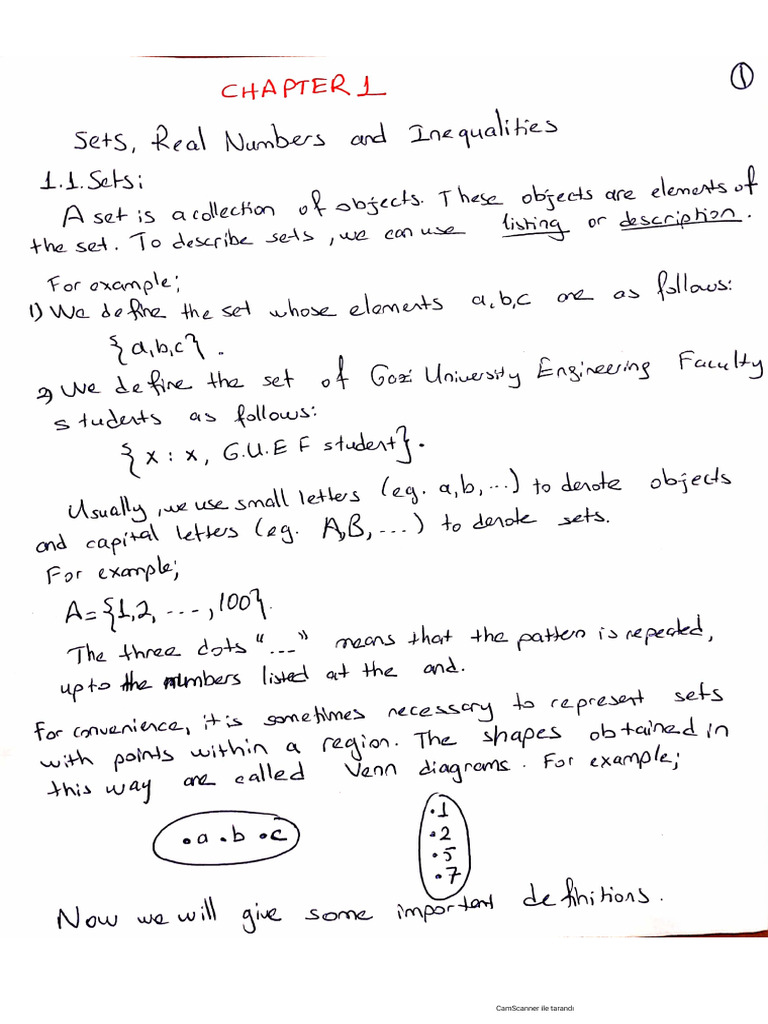 CHAPTER 1
①
Sets, Real Numbers and Inequalities
1.1. Sets:
A set is a collection of objects. These objects are elements of
the set. To describe sets, we can use listing or description.
For example;
1) We define the set whose elements a,b,c are as follows:
{a,b,c}.
2) We define the set of Gazi University Engineering Faculty
students as follows:
{x : x, G.U.E F student}.
Usually, we use small letters (eg. a,b, ...) to denote objects
and capital letters (eg. A,B, ...) to denote sets.
For example;
A={1,2, ..., 100}.
The three dots "..." means that the pattern is repeated,
upto the numbers listed at the end.
For convenience, it is sometimes necessary to represent sets
with points within a region. The shapes obtained in
this way are called Venn diagrams. For example;
.a .b .c
.1
.2
.5
.7
Now we will give some important definitions.
CamScanner ile tarandı